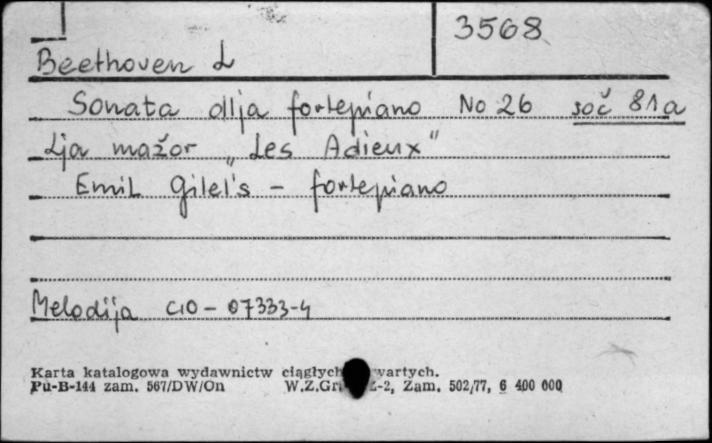 3568
Beethoven L
Sonata dlja fortepiano No 26 soč 81a
Lja mažor „Les Adieux"
Emil Gilel's - fortepiano
Melodija C10 - 07333-4
Karta katalogowa wydawnictw ciągłych wartych.
Pu-B-144 zam. 567/DW/On W.Z.Gr -2, Zam. 502/77, 6 400 000